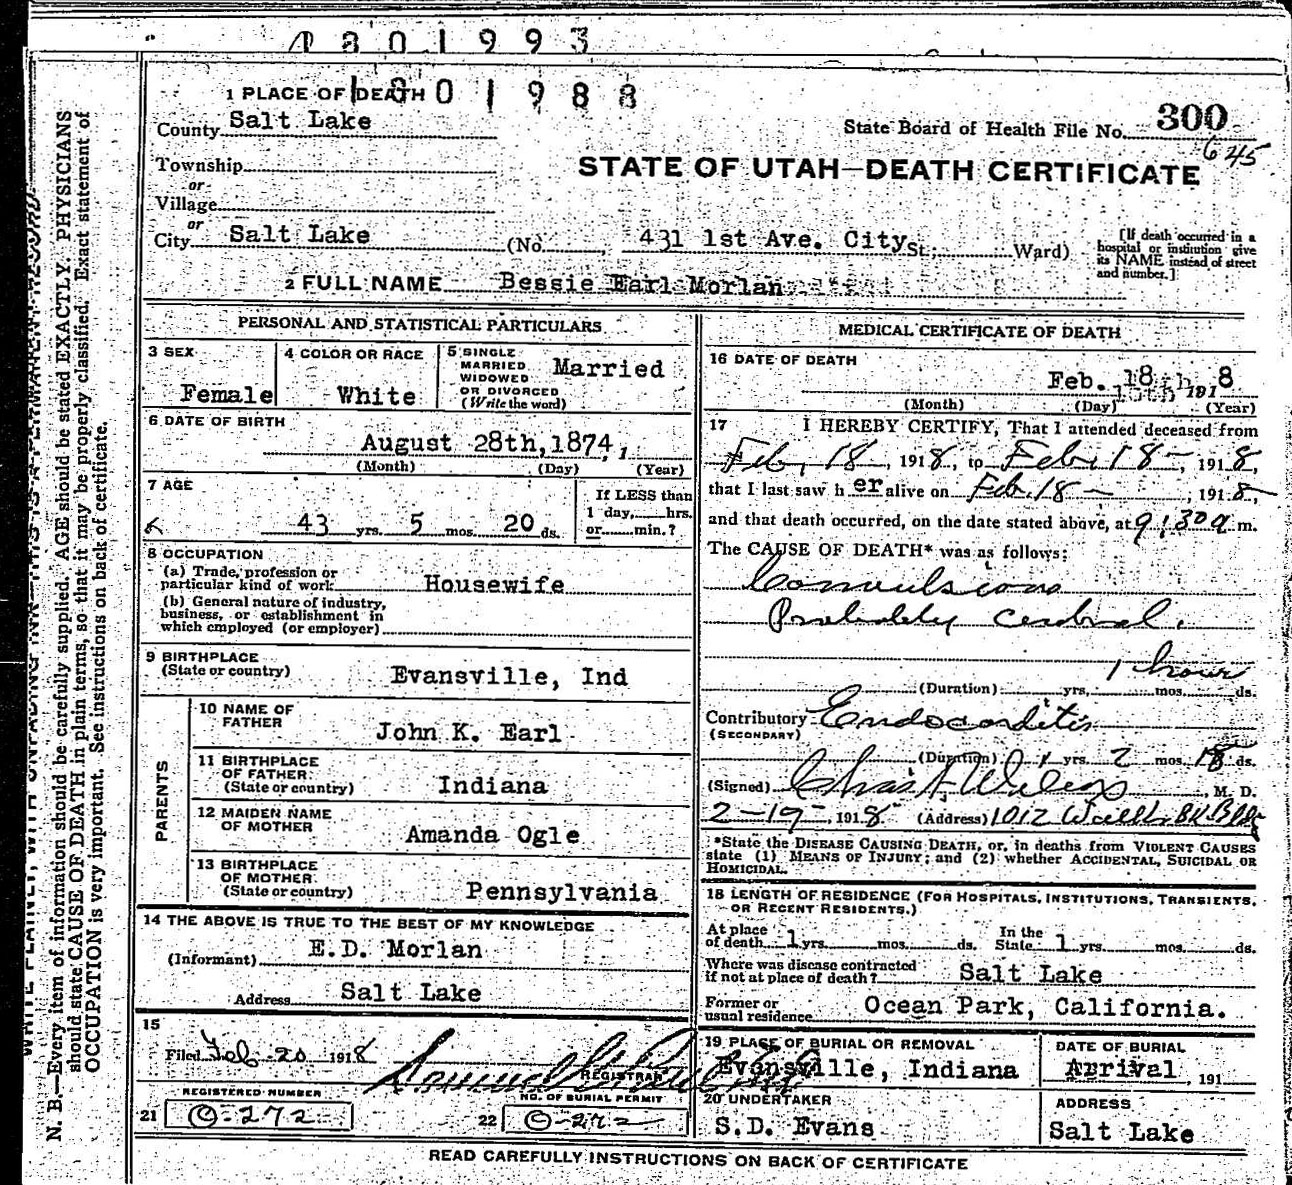 1801993
1801988
1 PLACE OF DEATH
County Salt Lake
State Board of Health File No. 300
645
Township
or
Village
or
STATE OF UTAH—DEATH CERTIFICATE
City Salt Lake (No. 431 1st Ave. City St.; Ward)
[If death occurred in a hospital or institution give its NAME instead of street and number.]
2 FULL NAME Bessie Earl Morlan
PERSONAL AND STATISTICAL PARTICULARS
3 SEX
Female
4 COLOR OR RACE
White
5 SINGLE
MARRIED
WIDOWED
OR DIVORCED
(Write the word)
Married
6 DATE OF BIRTH
August 28th, 1874,
(Month) (Day) (Year)
7 AGE
43 yrs. 5 mos. 20 ds.
If LESS than
1 day, hrs.
or min.?
8 OCCUPATION
(a) Trade, profession or
particular kind of work Housewife
(b) General nature of industry,
business, or establishment in
which employed (or employer)
9 BIRTHPLACE
(State or country)
Evansville, Ind
PARENTS
10 NAME OF
FATHER
John K. Earl
11 BIRTHPLACE
OF FATHER
(State or country)
Indiana
12 MAIDEN NAME
OF MOTHER
Amanda Ogle
13 BIRTHPLACE
OF MOTHER
(State or country)
Pennsylvania
14 THE ABOVE IS TRUE TO THE BEST OF MY KNOWLEDGE
(Informant) E.D. Morlan
Address Salt Lake
15
Filed Feb 20 1918
REGISTRAR
REGISTERED NUMBER
21 O-272
NO. OF BURIAL PERMIT
22 O-272
MEDICAL CERTIFICATE OF DEATH
16 DATE OF DEATH
Feb. 18th 1918
(Month) (Day) (Year)
17 I HEREBY CERTIFY, That I attended deceased from
Feb, 18, 1918, to Feb, 18-, 1918,
that I last saw her alive on Feb. 18-, 1918,
and that death occurred, on the date stated above, at 9:30a m.
The CAUSE OF DEATH* was as follows:
Convulsions
Probably cerebral.
1 hour
(Duration) yrs, mos. ds.
Contributory Endocarditis
(SECONDARY)
(Duration) 1 yrs 2 mos. 18 ds.
(Signed) Chas, M. D.
2-19-, 1918 (Address) 1012 BK Bldg
*State the DISEASE CAUSING DEATH, or, in deaths from VIOLENT CAUSES
state (1) MEANS OF INJURY; and (2) whether ACCIDENTAL, SUICIDAL OR
HOMICIDAL.
18 LENGTH OF RESIDENCE (FOR HOSPITALS, INSTITUTIONS, TRANSIENTS,
OR RECENT RESIDENTS.)
At place
of death 1 yrs. mos. ds.
In the
State 1 yrs. mos. ds.
Where was disease contracted
if not at place of death? Salt Lake
Former or
usual residence Ocean Park, California.
19 PLACE OF BURIAL OR REMOVAL
Evansville, Indiana
DATE OF BURIAL
Arrival, 191
20 UNDERTAKER
S.D. Evans
ADDRESS
Salt Lake
READ CAREFULLY INSTRUCTIONS ON BACK OF CERTIFICATE
WRITE PLAINLY, WITH UNFADING INK—THIS IS A PERMANENT RECORD
N. B.—Every item of information should be carefully supplied. AGE should be stated EXACTLY. PHYSICIANS
should state CAUSE OF DEATH in plain terms, so that it may be properly classified. Exact statement of
OCCUPATION is very important. See instructions on back of certificate.